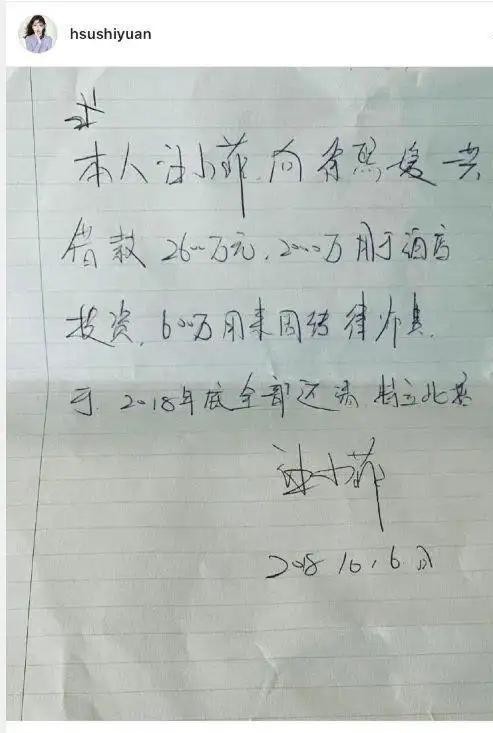 hsushiyuan
本人汪小菲向徐熙媛共
借款2600万元，2000万用于酒店
投资，600万用来周转律师费.
于2018年底全部还清 特立此据
汪小菲
2018 10.6日